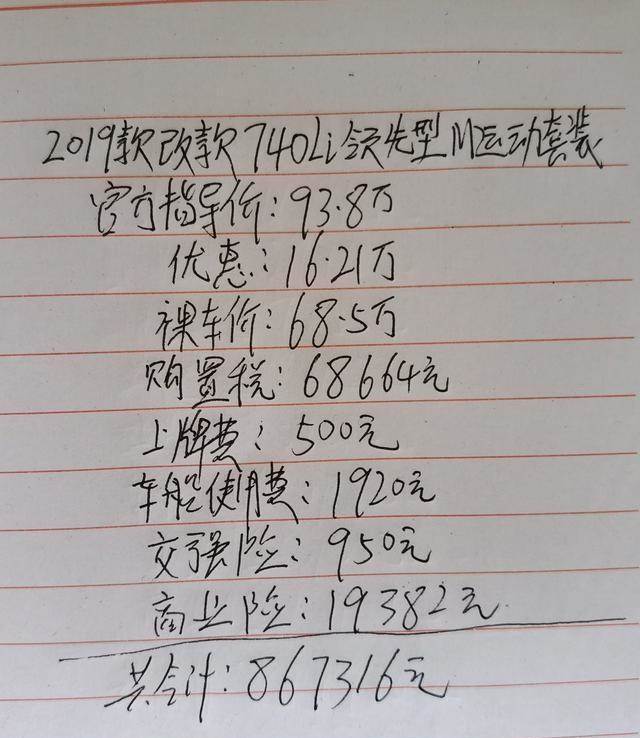 2019款改款740Li领先型M运动套装
官方指导价:93.8万
优惠:16.21万
裸车价:68.5万
购置税:68664元
上牌费:500元
车船使用费:1920元
交强险:950元
商业险:19382元
共合计:867316元